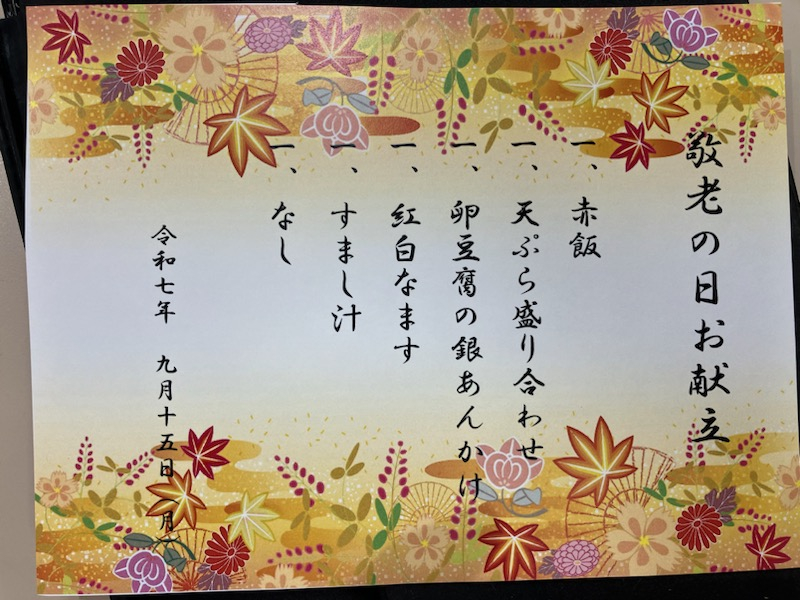 敬老の日お献立
一、赤飯
一、天ぷら盛り合わせ
一、卵豆腐の銀あんかけ
一、紅白なます
一、すまし汁
一、なし
令和七年 九月十五日(月)